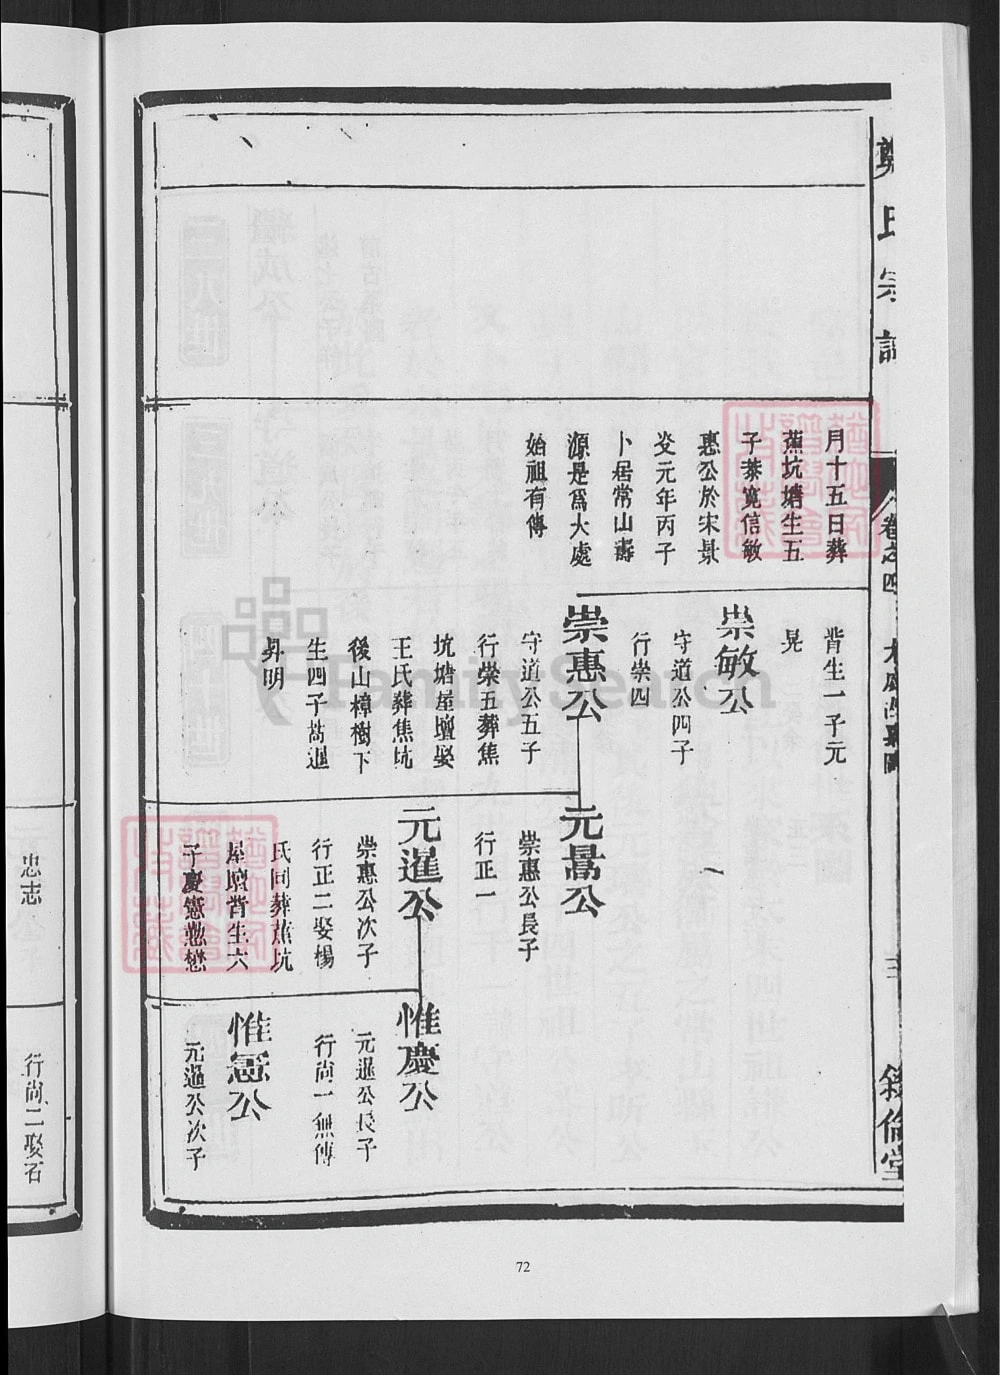 鄭氏宗譜
卷之四
三
敘倫堂
月十五日葬
蕉坑塘生五
子恭寬信敏
惠公於宋景
炎元年丙子
卜居常山壽
源是爲大處
始祖有傳
背生一子元
晃
崇敏公
守道公四子
行崇四
崇惠公
守道公五子
行崇五葬焦
坑塘屋壇娶
王氏葬焦坑
後山樟樹下
生四子暠暹
昇明
元暠公
崇惠公長子
行正一
元暹公
崇惠公次子
行正二娶楊
氏同葬蕉坑
屋壇背生六
子慶憲懃懋
惟慶公
元暹公長子
行尚一無傳
惟憲公
元暹公次子
忠志
行尚二娶石
72
FamilySearch